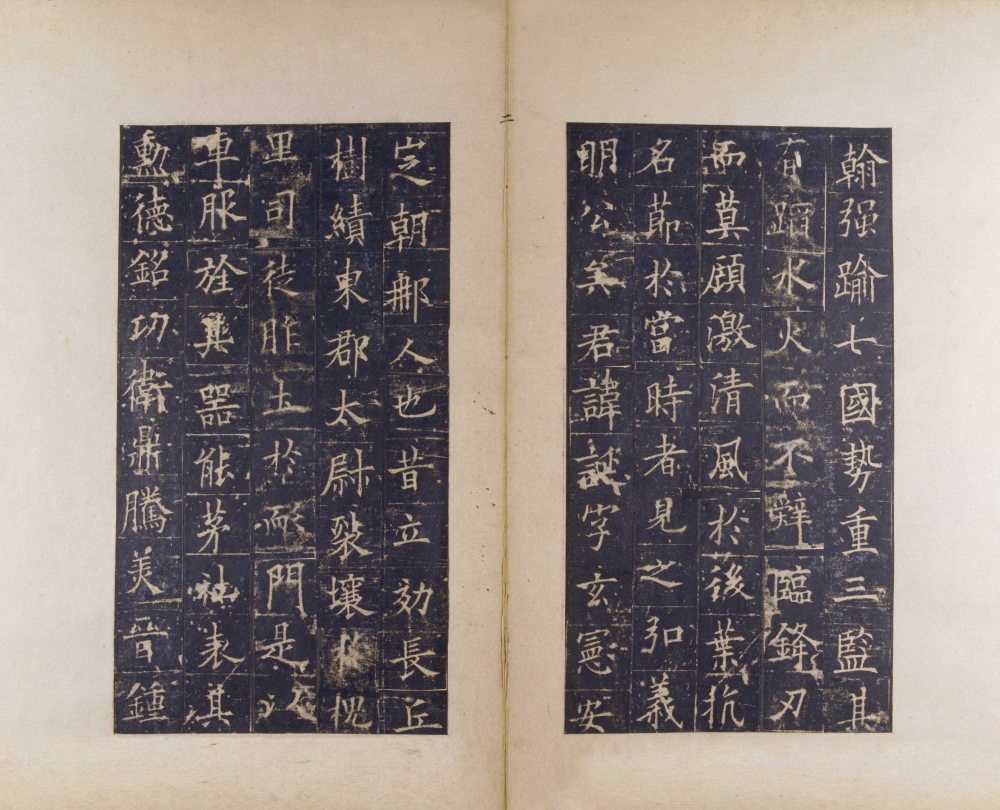 翰强踰七國勢重三監其
有蹈水火而不辭臨鋒刃
而莫顧激清風於後葉抗
名節於當時者見之弘義
明公矣君諱誕字玄憲安
定朝那人也昔立効長丘
樹績東郡太尉裂壤於槐
里司徒胙土於耏門是以
車服旌其器能茅社表其
勳德銘功衛鼎騰美晉鍾
二